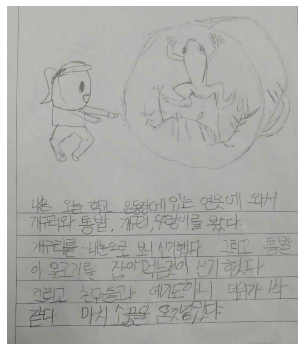 나는 오늘 학교 운동장에 있는 연못에 와서
개구리와 통발, 개구리, 우렁이를 봤다.
개구리를 내 눈으로 보니 신기했다 그리고 통발
이 물고기를 잡아 신기 했다
그리고 친구들과 얘기도하니 더위가 싹
같다 마치